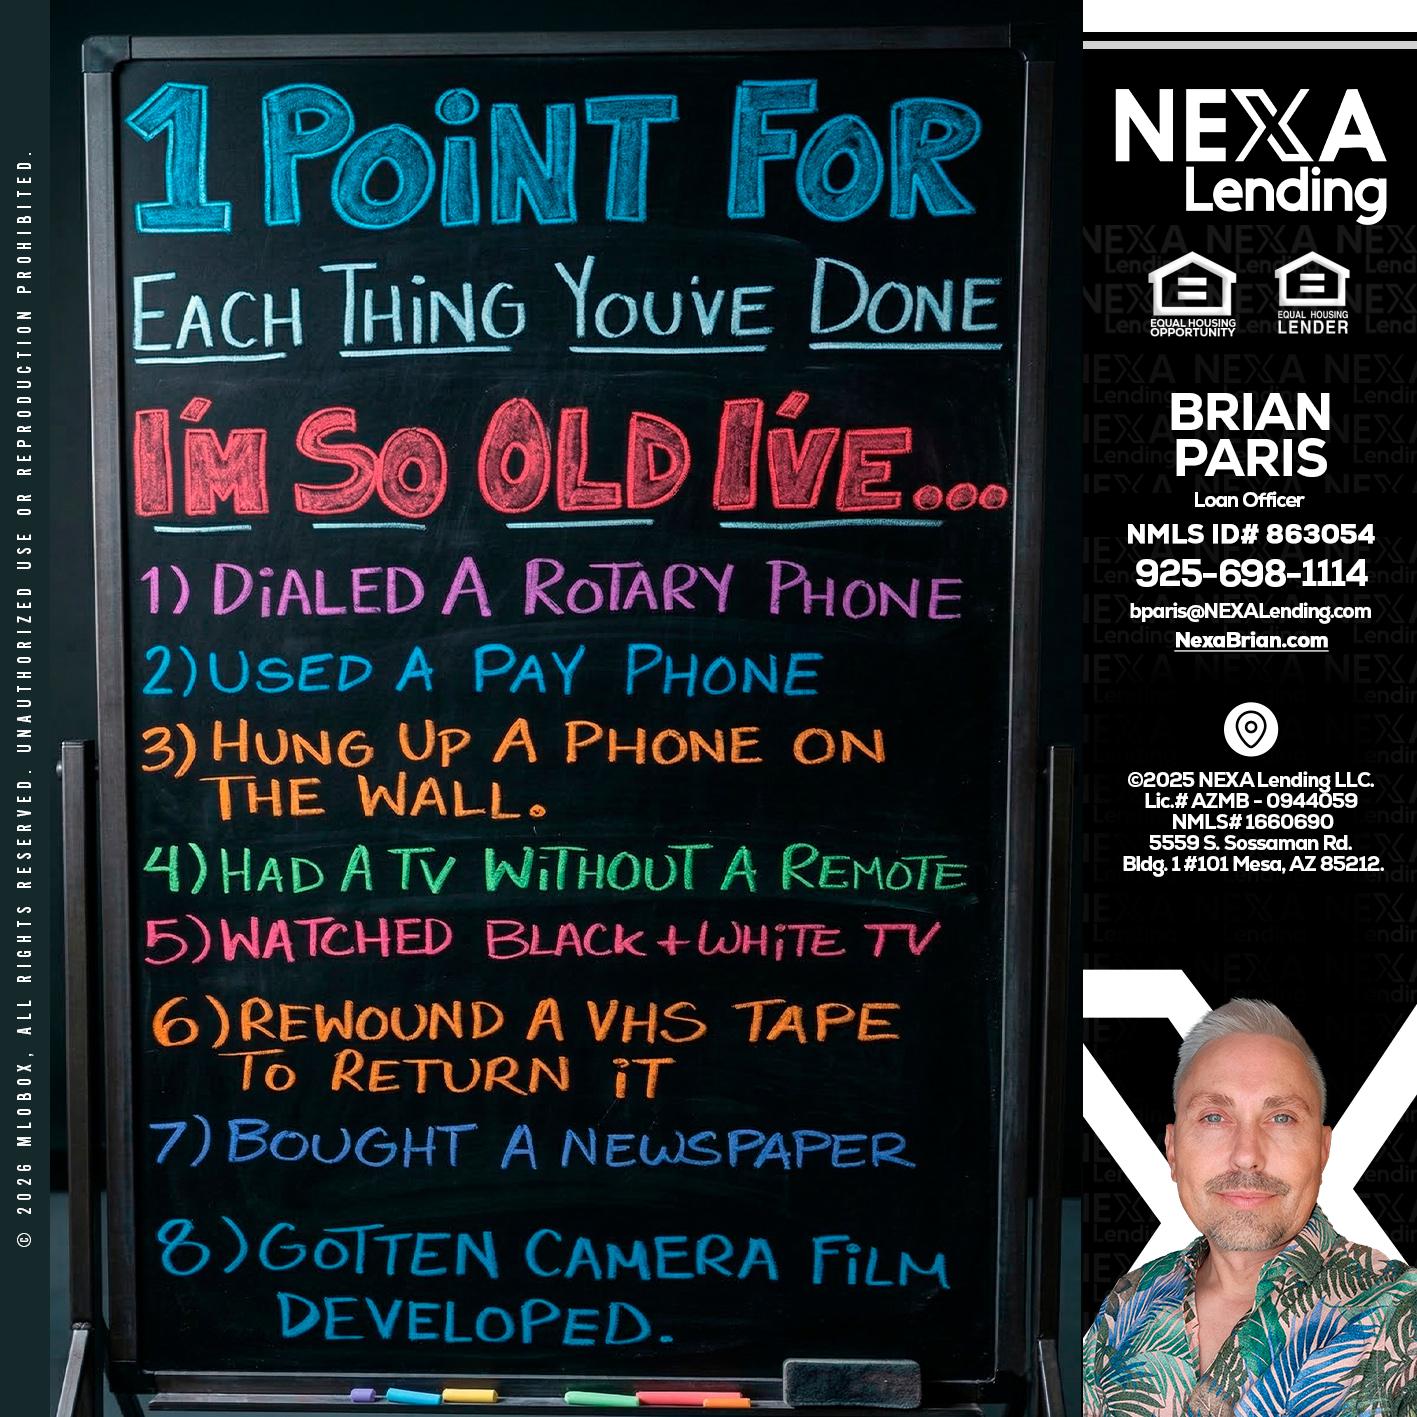 1 POINT FOR
EACH THING YOU'VE DONE
I'M SO OLD I'VE...
1) DIALED A ROTARY PHONE
2) USED A PAY PHONE
3) HUNG UP A PHONE ON
THE WALL.
4) HAD A TV WITHOUT A REMOTE
5) WATCHED BLACK + WHITE TV
6) REWOUND A VHS TAPE
TO RETURN IT
7) BOUGHT A NEWSPAPER
8) GOTTEN CAMERA FILM
DEVELOPED.
© 2026 MLOBOX, ALL RIGHTS RESERVED. UNAUTHORIZED USE OR REPRODUCTION PROHIBITED.
NEXA
Lending
EQUAL HOUSING
OPPORTUNITY
EQUAL HOUSING
LENDER
BRIAN
PARIS
Loan Officer
NMLS ID# 863054
925-698-1114
bparis@NEXALending.com
NexaBrian.com
©2025 NEXA Lending LLC.
Lic.# AZMB - 0944059
NMLS# 1660690
5559 S. Sossaman Rd.
Bldg. 1 #101 Mesa, AZ 85212.